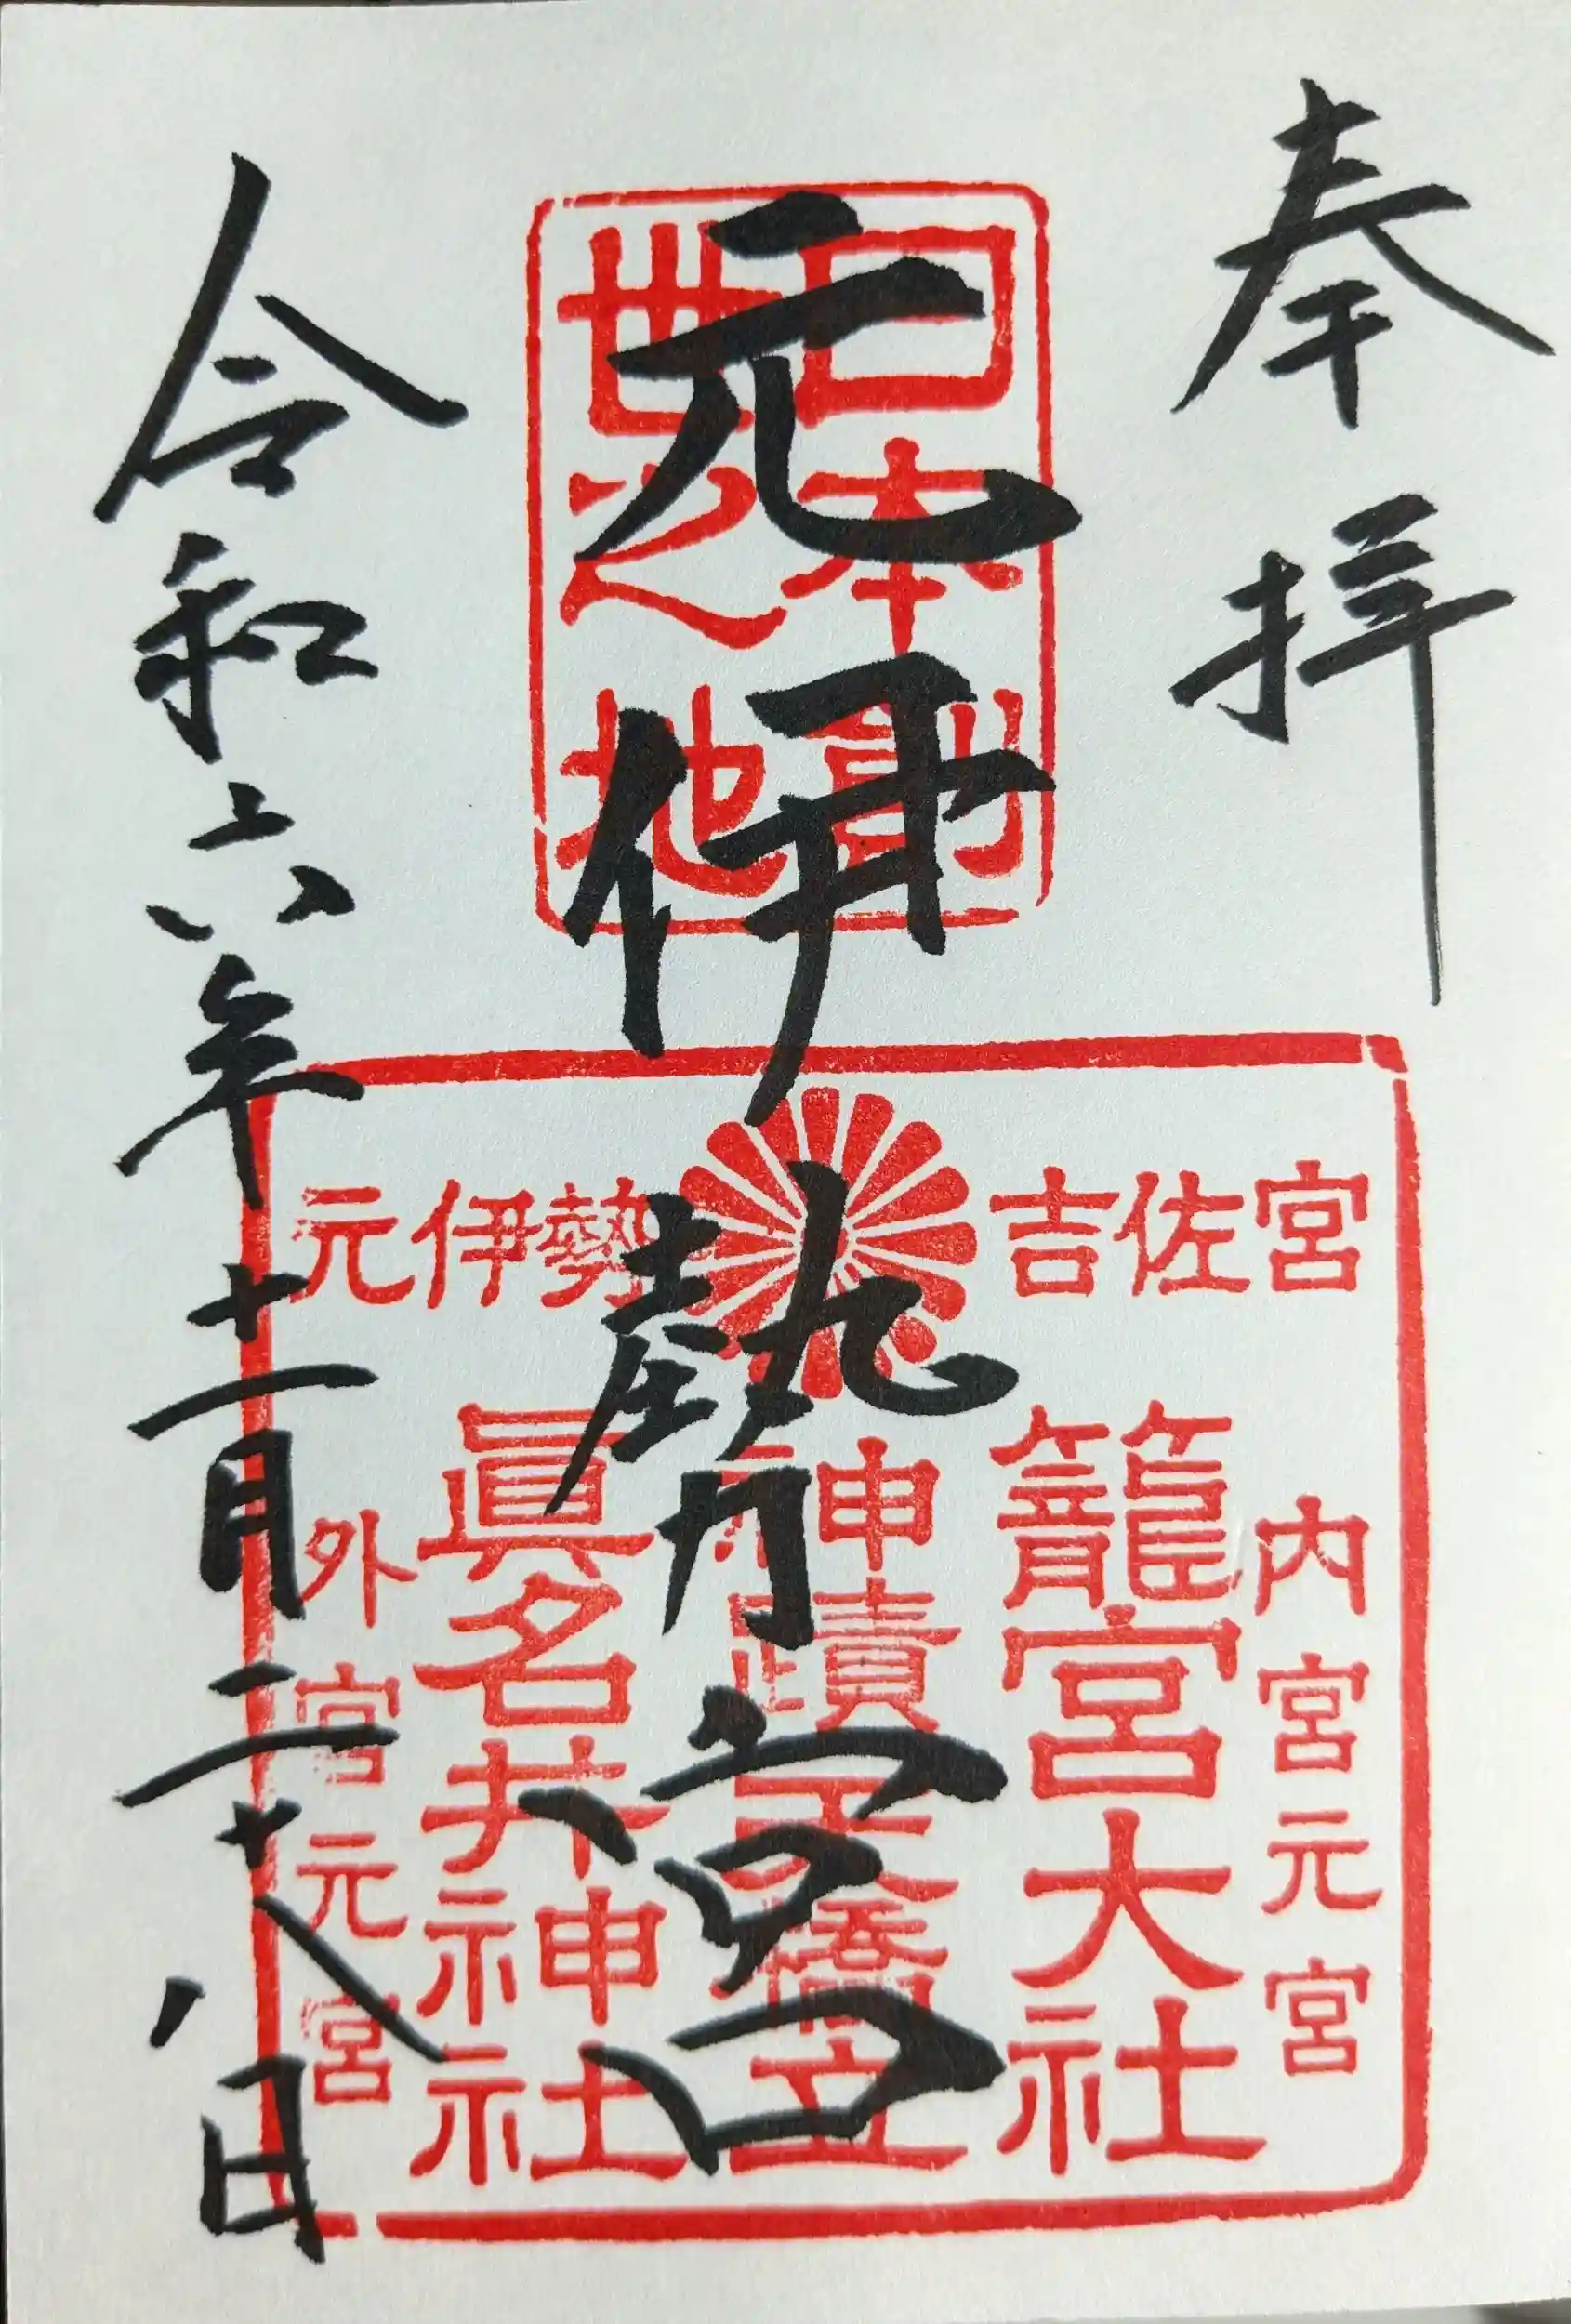 奉拝
日本創
世之地
元伊勢宮
令和六年十一月二十八日
吉佐宮
元伊勢
内宮元宮
籠宮大社
神蹟天橋立
眞名井神社
外宮元宮